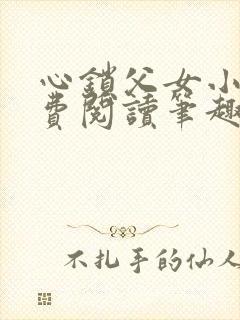 心鎖父女小
費閱讀筆趣
不扎手的仙人